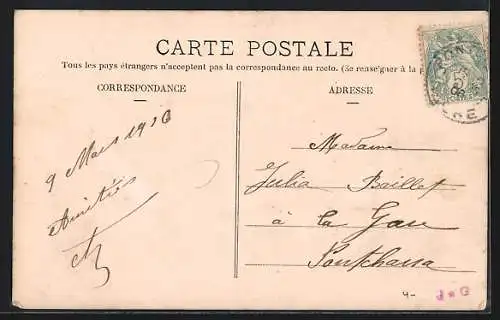 CARTE POSTALE
Tous les pays étrangers n'acceptent pas la correspondance au recto. (Se renseigner à la
CORRESPONDANCE
ADRESSE
9 Mars 1906
Amitiés
Madame
Julia Baillet
à la Gare
Pontcharra
4-
J*G